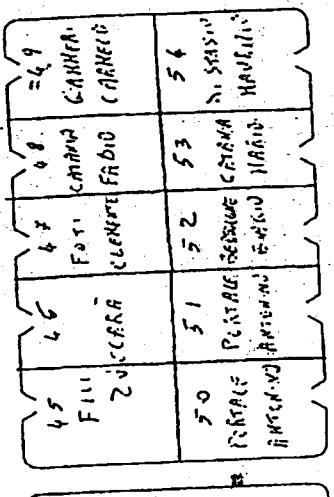 45
F.lli
46
ZUCCARÀ
47
FOTI
CLEMENTE
48
CATANIA
FABIO
49
CARMELO
50
PORTALE
ANTONINO
51
PORTALE
ANTONINO
52
53
CATANIA
MARIO
54
DI STASIO
MAURIZIO